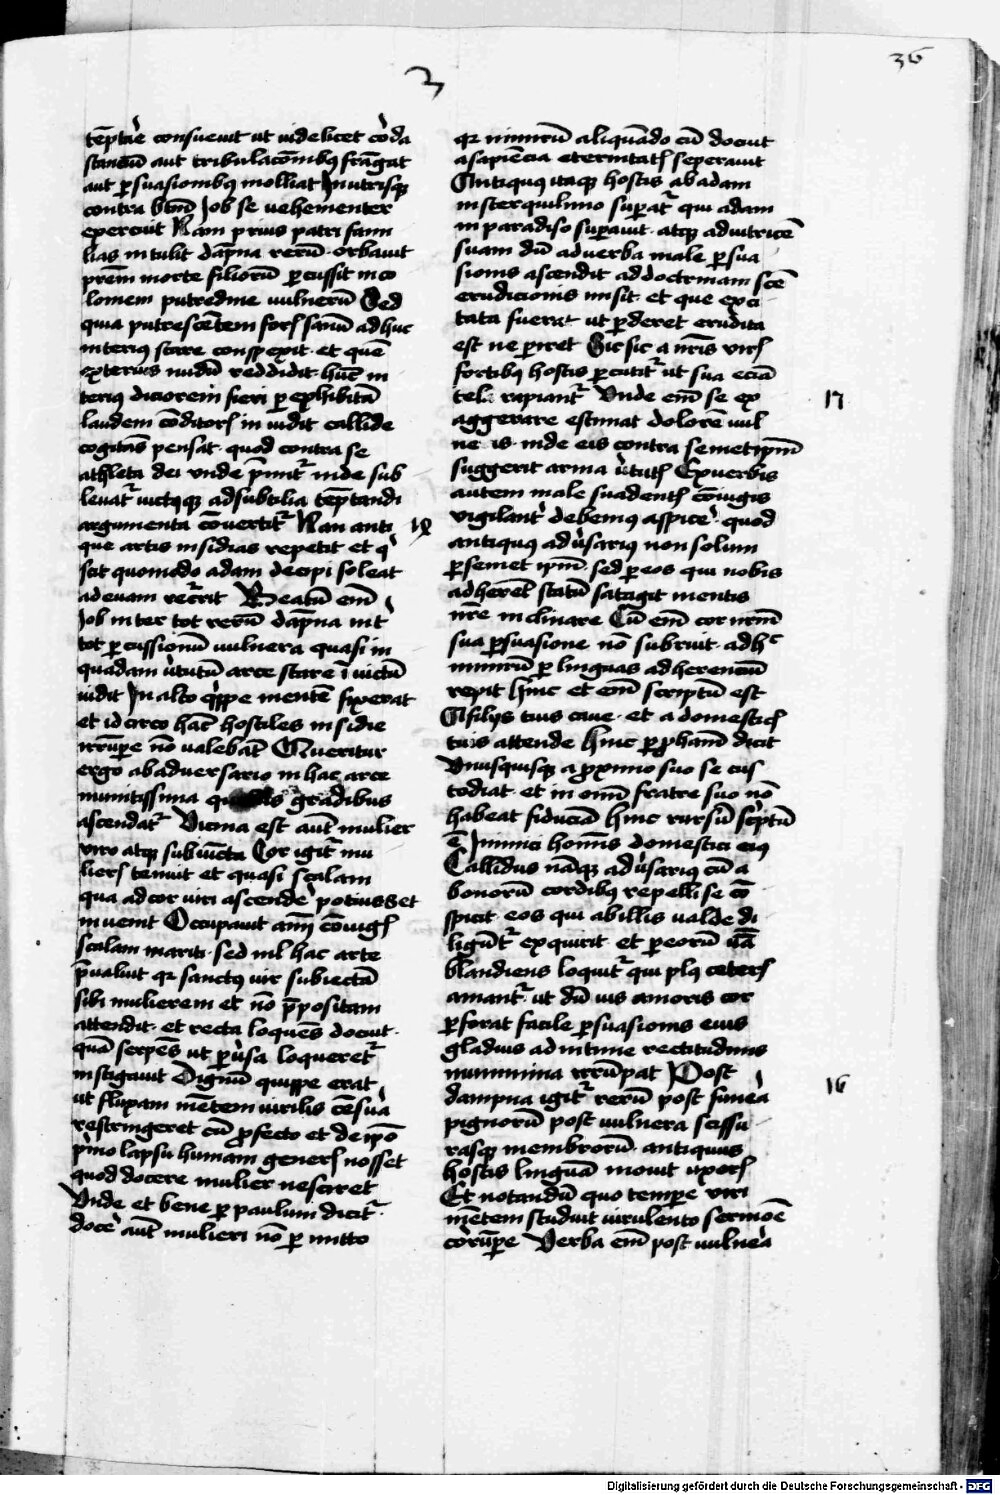 3
36
te̅pta᷑e consueuit ut uidelicet co᷑da
stanciu̅ aut tribulaco̅nibꝰ fra̅gat
aut ꝑsuasionibꝰ molliat In utrisqꝫ
contra bt̅m Job se uehementer
exercuit Nam prius patri fami
lias intulit da̅pna reru̅ · orbauit
pr̅em morte filioru̅ ꝑcussit inco
lomem putredine uulneru̅ Sed
quia putresce̅tem foris sanu̅ adhuc
interiꝰ stare conspexit · et que̅
exterius nudu̅ reddidit · hu̅c in
teriꝰ diciorem fieri ꝑ exhibita̅
laudem co̅ditoris inuidit callide
cogita̅s pensat · quod contra se
athleta dei unde p̅mit᷑ inde sub
leuat᷑ uictꝰqꝫ ad subtilia te̅ptandi
argumenta co̅uertit᷑ Nan anti
que artis insidias repetit et q᷑
scit quomodo adam decipi soleat
ad euam rec᷑rit Beatu̅ eni̅
Job inter tot reru̅ da̅pna int᷑
tot ꝑcussionu̅ uulnera quasi in
quadam u᷑tutu̅ arce stare i̅uictu̅
uidit In alto q᷑ppe mente̅ fixerat
et idcirco hac̅ hostiles insidie
irru̅pe no̅ ualeba̅t Queritur
ergo ab aduersario in hac arce
munitissima gradibus
ascendat᷑ Vicina est aut̅ mulier
uiro atqꝫ subiu̅cta Cor igit᷑ mu
lieris tenuit et quasi scalam
qua ad cor uiri ascende᷑ potuisset
inuenit Occupauit ani̅ co̅iugis
scalam mariti · sed nil hac arte
p̅ualuit qꝛ sanctꝰ uir subiecta̅
sibi mulierem et no̅ p̅positam
attendit · et recta loque̅s docuit ·
qua̅ serpe̅s ut ꝑu᷑sa loqueret᷑
instigauit Dignu̅ quippe erat
ut fluxam me̅tem uirilis ce̅su᷑a
restringeret cu̅ ꝓfecto et de ip̅o
p᷑mo lapsu humani generis nosset
quod docere mulier nesciret
Vnde et bene ꝑ paulum dicit᷑ ·
doce᷑ aut̅ mulieri no̅ ꝑmitto
qꝛ nimiru̅ aliqua̅do cu̅ docuit
a sapie̅cia eternitatis seperauit
Antiquꝰ itaqꝫ hostis ab adam
in sterquilinio suꝑat᷑ qui adam
in paradiso suꝑauit · atqꝫ adiutrice̅
suam du̅ ad uerba male ꝑsua
sionis ascendit ad doctrinam sce̅
erudicionis misit · et que exci
tata fuerat ut ꝑderet erudita
est ne ꝑiret Sic sic a nr̅is viris
fortibꝰ hostis ꝑcutit᷑ ut sua ecia̅
tela rapiant᷑ Vnde eni̅ se ex
17
aggerare estimat dolore̅ uul
neris · inde eis contra semetip̅m
suggerit arma u᷑tutis Ex uerbis
autem male suadentis co̅iugis
vigilant᷑ debemꝰ aspice᷑ · quod
antiquꝰ adu᷑sariꝰ non solum
ꝑ semet ip̅m · sed ꝑ eos qui nobis
adhere̅t statu̅ satagit mentis
nr̅e inclinare Cu̅ eni̅ cor nr̅m
sua ꝑsuasione no̅ subruit · adhᶜ
nimiru̅ ꝑ linguas adherenciu̅
repit Hinc et eni̅ scriptu̅ est
A filijs tuis caue · et a domesticis
tuis attende Hinc ꝑ ꝓphetam̅ dicit
Vnusquisqꝫ a ꝓximo suo se cus
todiat · et in omi̅ fratre suo no̅
habeat fiducia̅ hinc rursu̅ sc᷑ptu̅
e̅ Inimici homi̅s domestici eiꝰ
Callidus na̅qꝫ adu᷑sariꝰ cu̅ a
bonoru̅ cordibꝰ repelli se co̅
spicit eos qui ab illis ualde di
ligu̅t᷑ exquirit et ꝑ eoru̅ ua̅
blandiens loquit᷑ qui plꝰ ceteris
amant᷑ · ut du̅ uis amoris cor
ꝑforat facile ꝑsuasionis eius
gladius ad intime rectitudinis
munimina irru̅pat Post
16
dampna igit᷑ reru̅ post fune᷑a
pignoru̅ post uulnera scissu
rasqꝫ membroru̅ · antiquus
hostis lingua̅ mouit uxoris
Et notandu̅ quo tempe viri
me̅tem studuit uirulento sermo̅e
co᷑ru̅pe Verba eni̅ post uulne᷑a
Digitalisierung gefördert durch die Deutsche Forschungsgemeinschaft - DFG